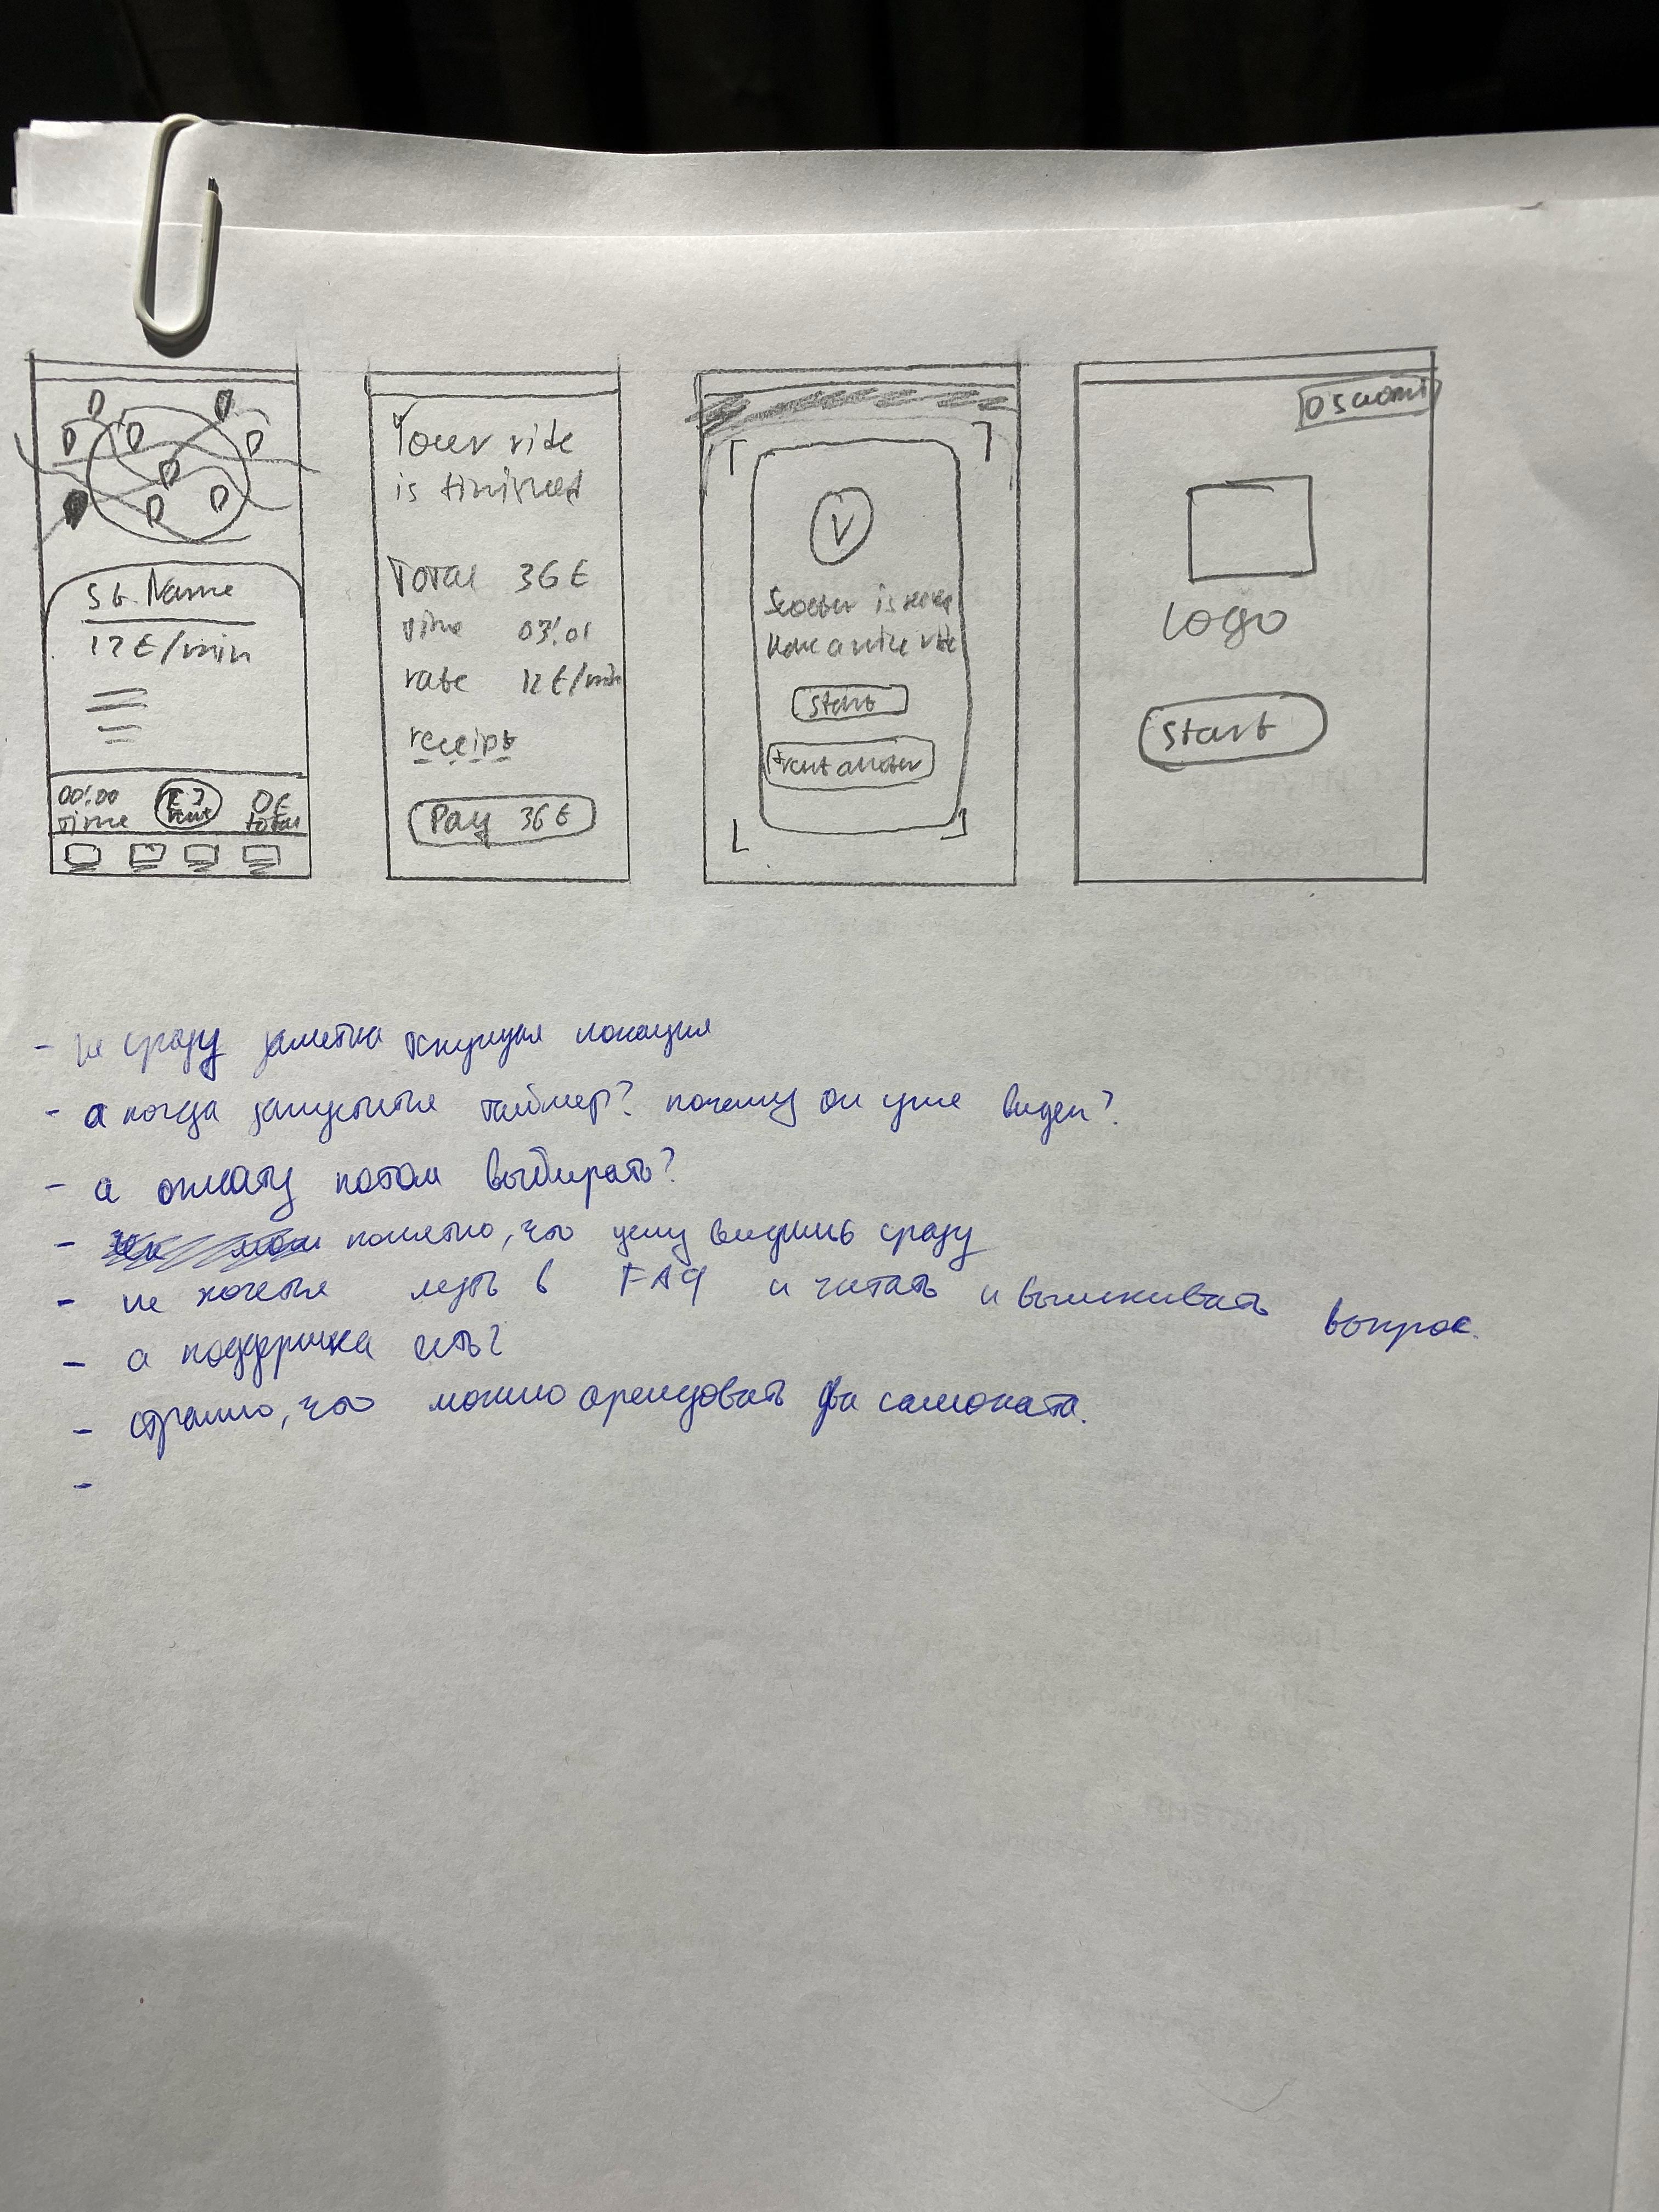 St. Name
12€/min
00:00
Time
Rent
0€
total
Your ride
is finished
Total 36€
time 03:01
rate 12€/min
receipt
Pay 36€
V
Scooter is
Have a nice ride
Start
+rent another
logo
Start
- не сразу заметна текущая локация
- а когда запустится таймер? почему он уже виден?
- а оплату потом выбирать?
- понятно, что цену видишь сразу
- не хочется лезть в FAQ и читать и выискивать вопрос.
- а поддержка есть?
- странно, что можно арендовать два самоката.
-